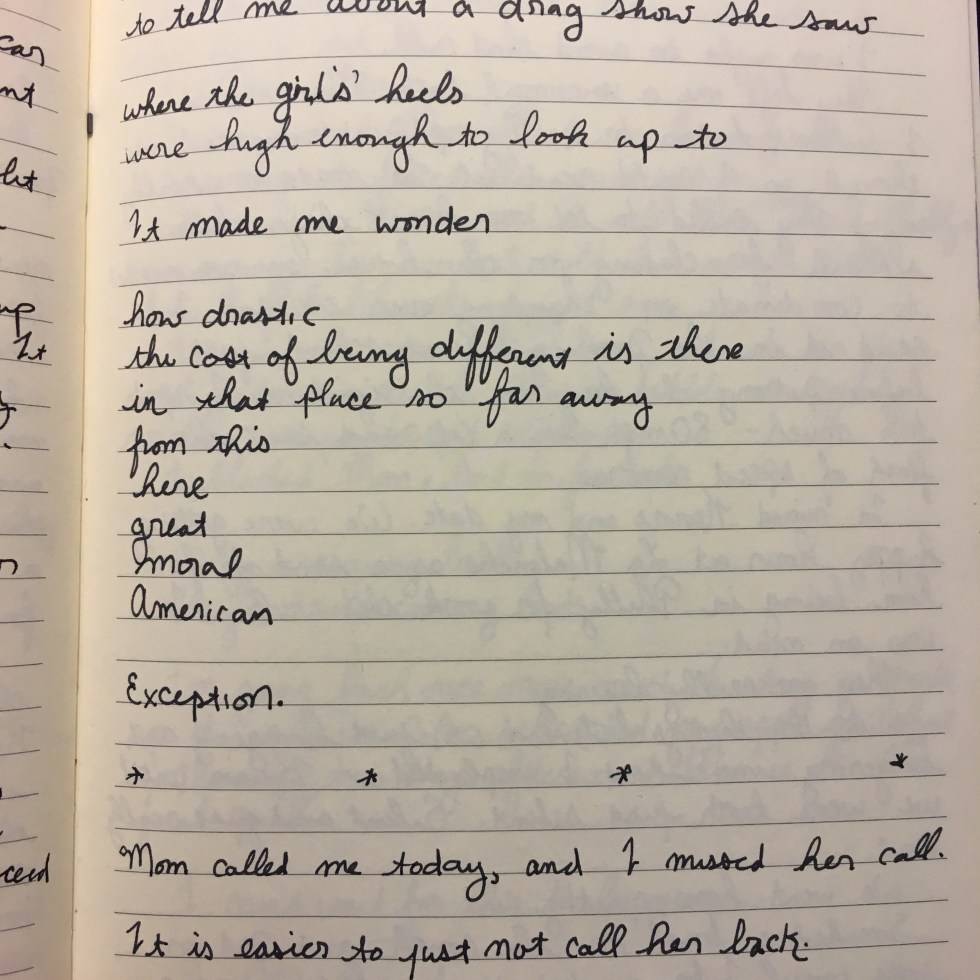 can
nt
ht
up
It
ceed
to tell me about a drag show she saw
where the girls' heels
were high enough to look up to
It made me wonder
how drastic
the cost of being different is there
in that place so far away
from this
here
great
moral
American
Exception.
* * * *
Mom called me today, and I missed her call.
It is easier to just not call her back.